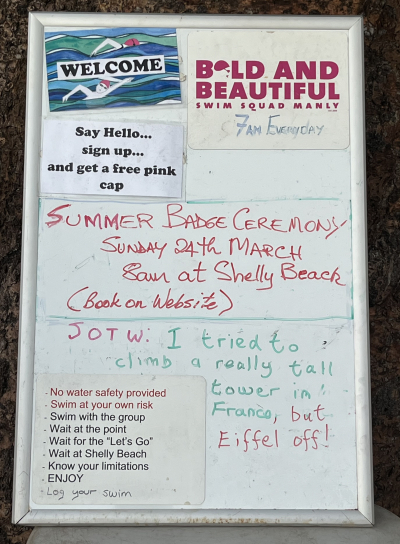 WELCOME
BOLD AND
BEAUTIFUL
SWIM SQUAD MANLY
7AM EVERYDAY
Say Hello...
sign up...
and get a free pink
cap
SUMMER BADGE CEREMONY
SUNDAY 24TH MARCH
8am at Shelly Beach
(Book on Website)
JOTW: I tried to
climb a really tall
tower in
France, but
Eiffel off!
- No water safety provided
- Swim at your own risk
- Swim with the group
- Wait at the point
- Wait for the "Let's Go"
- Wait at Shelly Beach
- Know your limitations
- ENJOY
- Log your swim